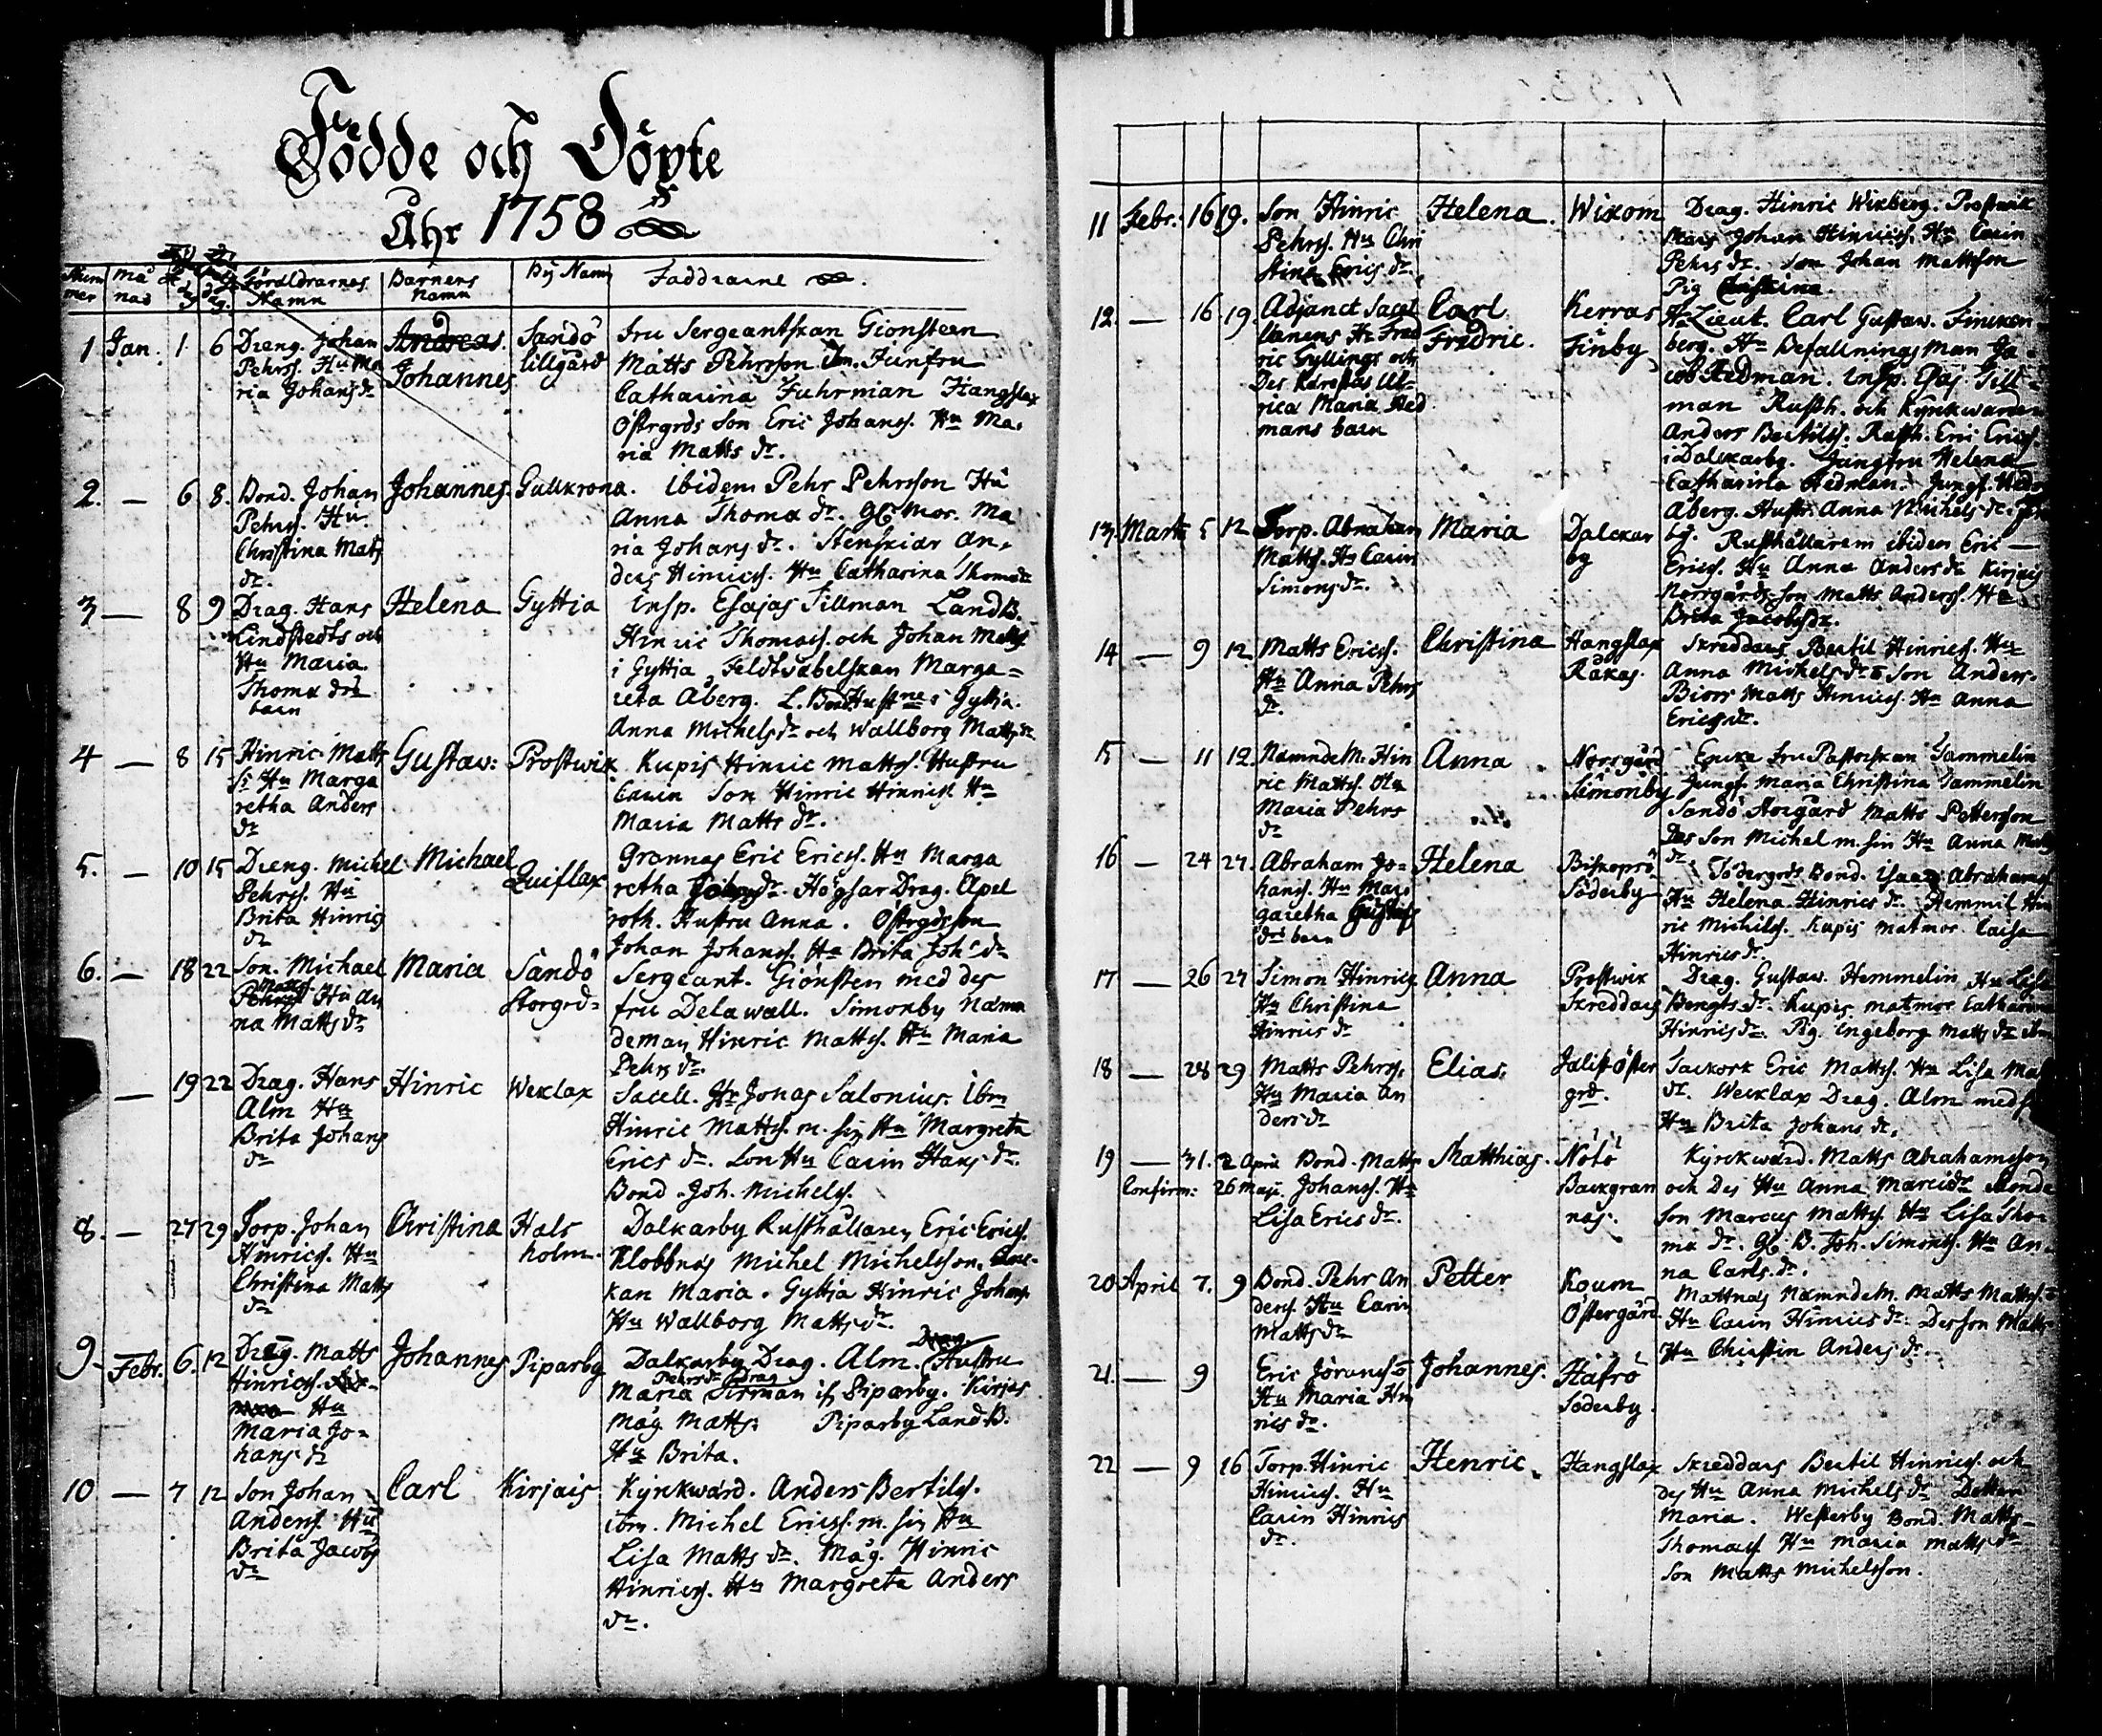 Födde och Döpte
Åhr 1758
Num
mer
Må
nad
Föräldrarnes
Namn
Barnens
Namn
By Namn
Faddrarne
1 Jan. 1 6 Dreng. Johan
Pehrss. Hu Ma
ria Johans dr
Andreas.
Johannes
Sandö
Lillgård
fru Sergeantskan Gionsteen
Matts Pehrsson Ibm. Junfru
Catharina Fuhrman Hangslax
Östrgrds Son Eric Johanss. Hu Ma
ria Matts dr.
2. — 6 8. Bond. Johan
Pehrss. Hu
Christina Mats
dr.
Johannes.
Gullkrona.
ibidem Pehr Pehrsson Hu
Anna Thomæ dr. Gl. Mor. Ma
ria Johans dr. Stenskiär An
ders Hinricss. Hu Catharina Thomæ dr
3 — 8 9 Drag. Hans
Lindstedts och
Hu Maria
Thomæ drs
barn
Helena
Gyttia
Insp. Esajas Tillman LandB.
Hinric Thomass. och Johan Matss
i Gyttia Feldtväbelskan Marga=
reta Åberg. L. Bond Hustrur i Gyttia.
Anna Michels dr och Wallborg Matts dr
4 — 8 15 Hinric Matts
S: Hu Marga
retha Anders
dr
Gustav:
Prostwik
Kupis Hinric Mattss. Hustru
Carin Son Hinric Hinricss Hu
Maria Matts dr.
5. — 10 15 Dreng. Michel
Pehrss. Hu
Brita Hinrics
dr
Michael
Quislax
Grannas Eric Ericss. Hu Marga
retha Johans dr. Högsar Drag. Apel
roth. Hustru Anna. Östrgrds son
Johan Johanss. Hu Brita Joh: dr
6. — 18 22 Son. Michael
Matts.
Pehrss Hu An
na Matts dr
Maria
Sandö
Storgrd
Sergeant. Giönsten med des
fru Delawall. Simonby Nämn
deman Hinric Mattss. Hu Maria
Pehrs dr.
— 19 22 Drag. Hans
Alm Hu
Brita Johans
dr
Hinric
Wexlax
Sacell. Hr Jonas Salonius. Ibm
Hinric Mattss. m. sin Hu Margreta
Erics dr. Son Hu Carin Hans dr.
Bond. Joh. Michelss.
8. — 27 29 Torp. Johan
Hinricss. Hu
Christina Matts
dr
Christina
Hals
holm.
Dalkarby Rusthållaren Eric Ericss.
Klobbnäs Michel Michelsson. Enc=
kan Maria. Gyttja Hinric Johans.
Hu Wallborg Matts dr.
9. Febr. 6. 12 Dreng. Matts
Hinricss.
Hu
Maria Jo=
hans dr
Johannes
Piparby
Drag.
Dalkarby Drag. Alm. Hustru
Pehrs dr Drag
Maria Firman if Piparby. Kirjas
Måg Matts. Piparby Land B.
Hu Brita.
10 — 7 12 Son Johan
Anderss. Hu
Brita Jacobs
dr
Carl
Kirjais
Kyrkwärd. Anders Bertilss.
ibm. Michel Ericss. m. sin Hu
Lisa Matts dr. Måg. Hinric
Hinricss. Hu Margreta Anders
dr.
11 Febr: 16 19. Son Hinric
Pehrss. Hu Chri
stina Erics dr.
Helena.
Wikom
Drag. Hinric Wikberg. Prostwik
Mårs Johan Hinricss. Hu Carin
Pehrs dr. Son Johan Mattsson
Pig Christina.
12. — 16 19. Adjunct Sacel
lanens Hr Fred
ric Gyllings och
Des Kärestas Ul=
rica Maria Hed
mans barn
Carl
Fredric.
Kerras
Finby
Hr Lieut. Carl Gustaw. Fincken
berg. Hr Befallningsman Ja
cob Hedman. Insp. Esaj. Till=
man Rusth. och Kyrkwärden
Anders Bertilss. Rusth. Eric Ericss
i Dalkarby. Jungfru Helena
Catharina Hedman. Jungf. Hedv
Åberg. Hustr. Anna Michels dr.
13. Marti 5 12 Torp. Abraham
Mattss. Hu Carin
Simons dr.
Maria
Dalckar
by
by. Rusthållaren ibidem Eric —
Ericss. Hu Anna Anders dr Kirjais
Norrgårds son Matts Anderss. Hu
Brita Jacobs dr.
14 — 9 12 Matts Ericss.
Hu Anna Pehrs
dr.
Christina
Hangslax
Räkas.
Skreddars Bertil Hinricss. Hu
Anna Michels dr Son Anders.
Biörs Matts Hinricss. Hu Anna
Erics dr.
15 — 11 12. NämndeM. Hin
ric Mattss. Hu
Maria Pehrs
dr
Anna
Norrgård
Simonby
Encka fru Pastorskan Tammelin
Jungf. Maria Christina Tammelin
Sandö Storgård Matts Pettersson
Des Son Michel m. sin Hu Anna Matts
dr
16 — 24 27. Abraham Jo=
hanss. Hu Mar
garetha Gustafs
drs barn
Helena
Biskopsö
Söderby
Södergrds Bond. Isaac Abrahams
Hu Helena Hinrics dr. Hemmil Hin
ric Michelss. Kupis matmor Caisa
Hinrics dr.
17 — 26 27 Simon Hinrics
Hu Christina
Hinrics dr
Anna
Prostwik
Skreddars
Drag. Gustaw. Hemmelin Hu Lisa
Bengts dr. Kupis matmor Catharina
Hinrics dr. Pig. Ingeborg Matts dr ibm
18 — 28 29 Matts Pehrss.
Hu Maria An
ders dr
Elias.
Jalist Öster
grd.
Sackork Eric Mattss. Hu Lisa Mat
dr. Wecklax Drag. Alm med
Hu Brita Johans dr.
19 — 31. 2 April Bond. Matts
Confirm: 26 Maji. Johanss. Hu
Lisa Erics dr.
Matthias.
Nötö
Backgran
nas.
Kyrckwärd. Matts Abrahamsson
och Des Hu Anna Marci dr Bonde
Son Marcus Mattss. Hu Lisa Tho=
mæ dr. Gl. B. Joh. Simonss. Hu An
na Carls dr.
20 April 7. 9 Bond. Pehr An
derss. Hu Carin
Matts dr
Petter
Koum
Östergård
Mattnäs NämndeM. Matts Mattss.
Hu Carin Hinrics dr. Des son Matts
Hu Christin Anders dr.
21. — 9 Eric Jöranss
Hu Maria Hin
rics dr.
Johannes.
Hafrö
Söderby.
22 — 9 16 Torp. Hinric
Hinricss. Hu
Carin Hinrics
dr.
Henric.
Hangslax
Skreddars Bertil Hinricss. och
Des Hu Anna Michels dr Dotter
Maria. Westerby Bond. Matts
Thomass Hu Maria Matts dr
Son Matts Michelsson.